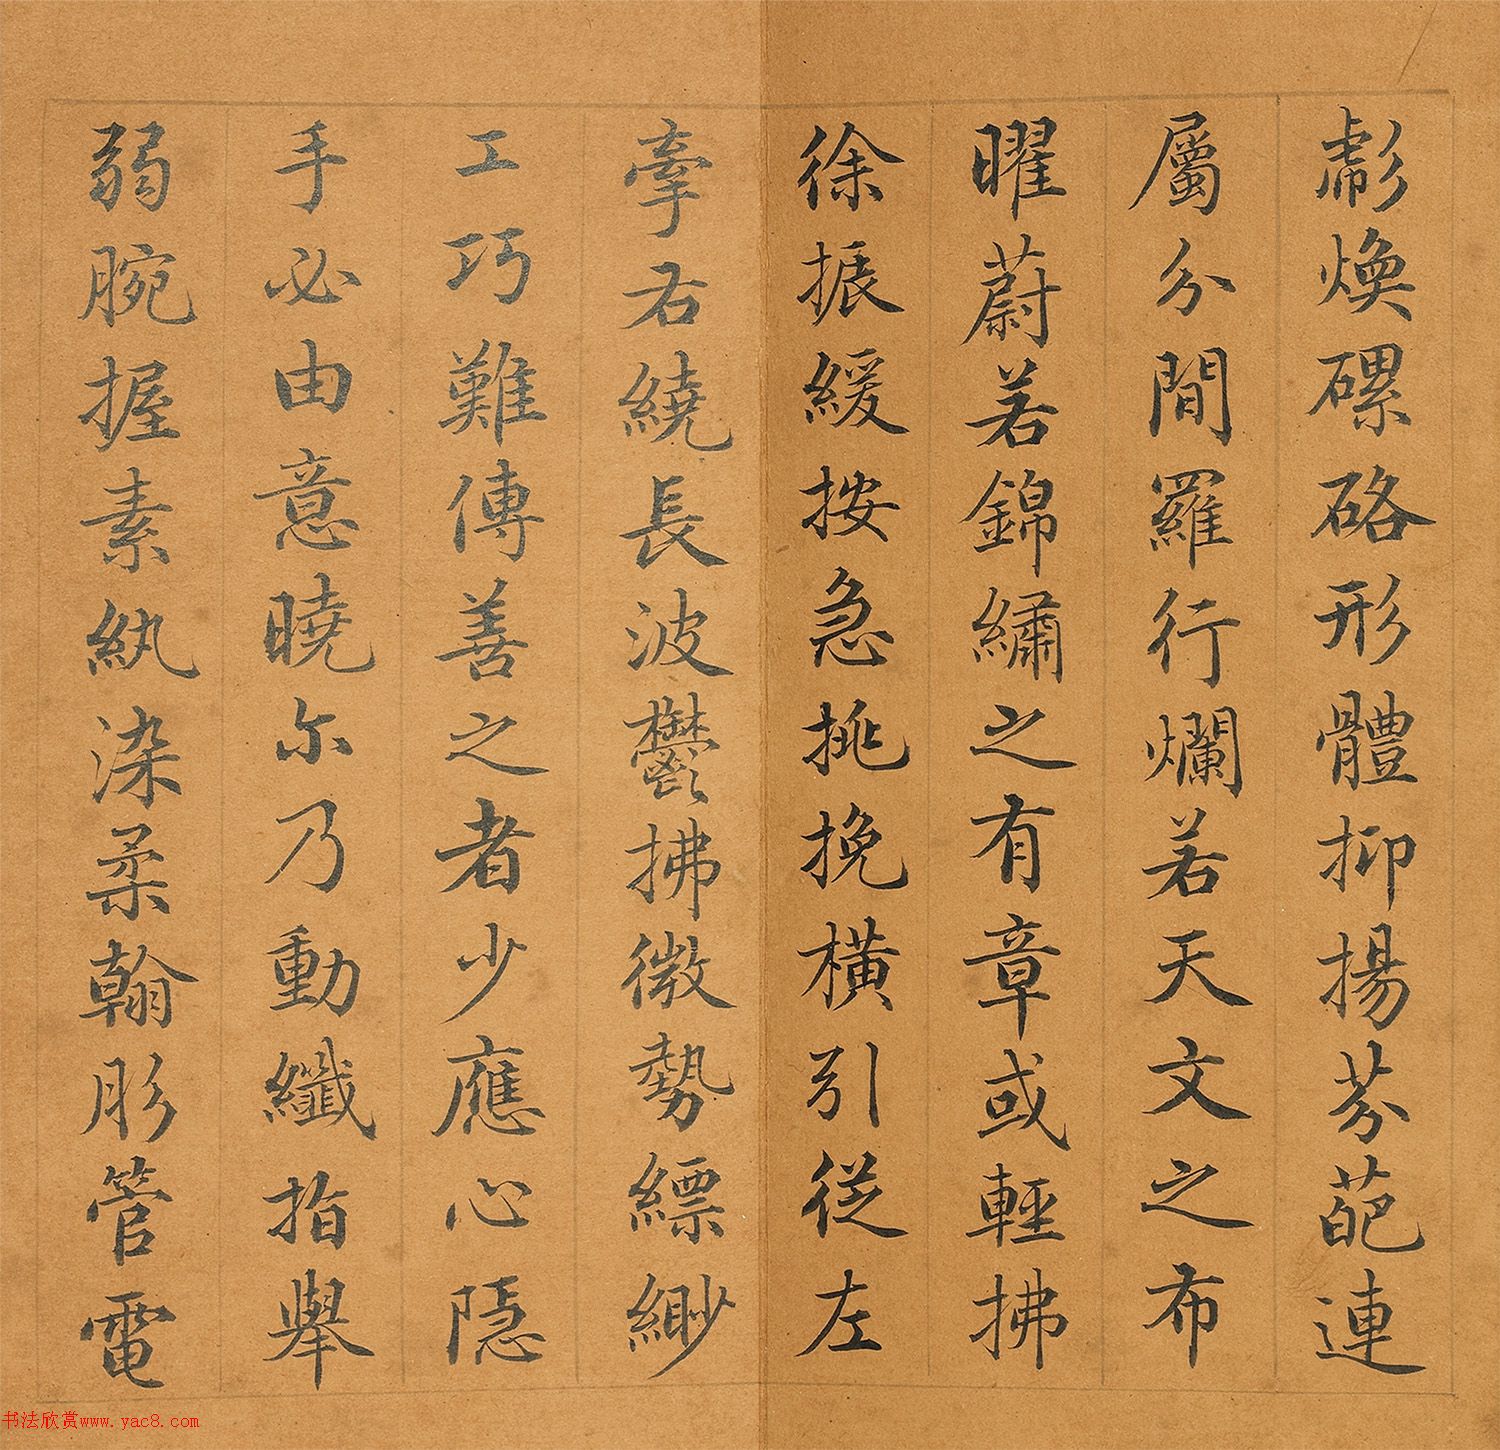 彪煥磥硌形體抑揚芬葩連
屬分間羅行爛若天文之布
曜蔚若錦繡之有章或輕拂
徐振緩按急挑挽橫引從左
牽右繞長波鬱拂微勢縹緲
工巧難傳善之者少應心隱
手必由意曉尓乃動纖指舉
弱腕握素紈染柔翰彤管電
书法欣赏www.yac8.com